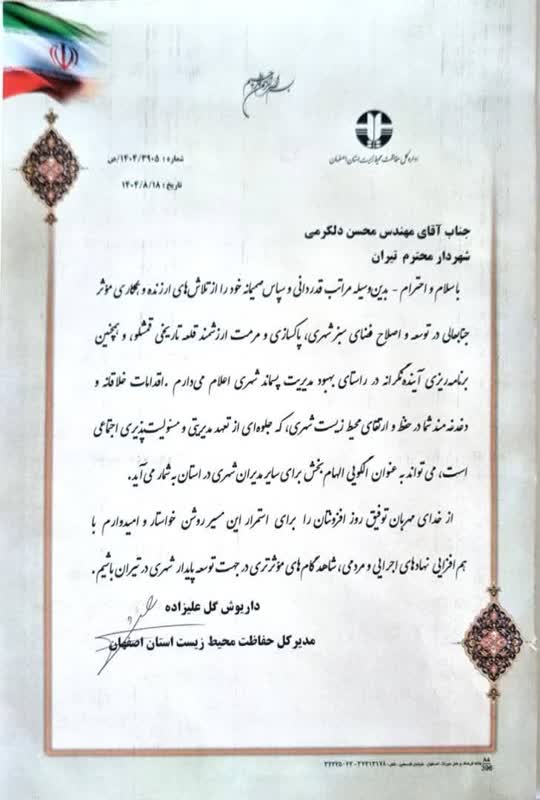 اداره کل حفاظت محیط زیست استان اصفهان
شماره : ۱۴۰۴/۳۹۰۵/ص
تاریخ : ۱۴۰۴/۸/۱۸
جناب آقای مهندس محسن دلکرمی
شهردار محترم تیران
باسلام و احترام - بدین‌وسیله مراتب قدردانی و سپاس صمیمانه خود را از تلاش‌های ارزنده و همکاری مؤثر
جنابعالی در توسعه و اصلاح فضای سبز شهری، پاکسازی و مرمت ارزشمند قلعه تاریخی قمشلو، و همچنین
برنامه‌ریزی آینده‌نگرانه در راستای بهبود مدیریت پسماند شهری اعلام می‌دارم .اقدامات خلاقانه و
دغدغه‌مند شما در حفظ و ارتقای محیط زیست شهری، که جلوه‌ای از تعهد مدیریتی و مسئولیت‌پذیری اجتماعی
است، می‌تواند به عنوان الگویی الهام بخش برای سایر مدیران شهری در استان به شمار می‌آید.
از خدای مهربان توفیق روز افزونتان را برای استمرار این مسیر روشن خواستار و امیدوارم با
هم افزایی نهادهای اجرایی و مردمی، شاهد گام‌های مؤثرتری در جهت توسعه پایدار شهری در تیران باشیم.
داریوش گل علیزاده
مدیر کل حفاظت محیط زیست استان اصفهان